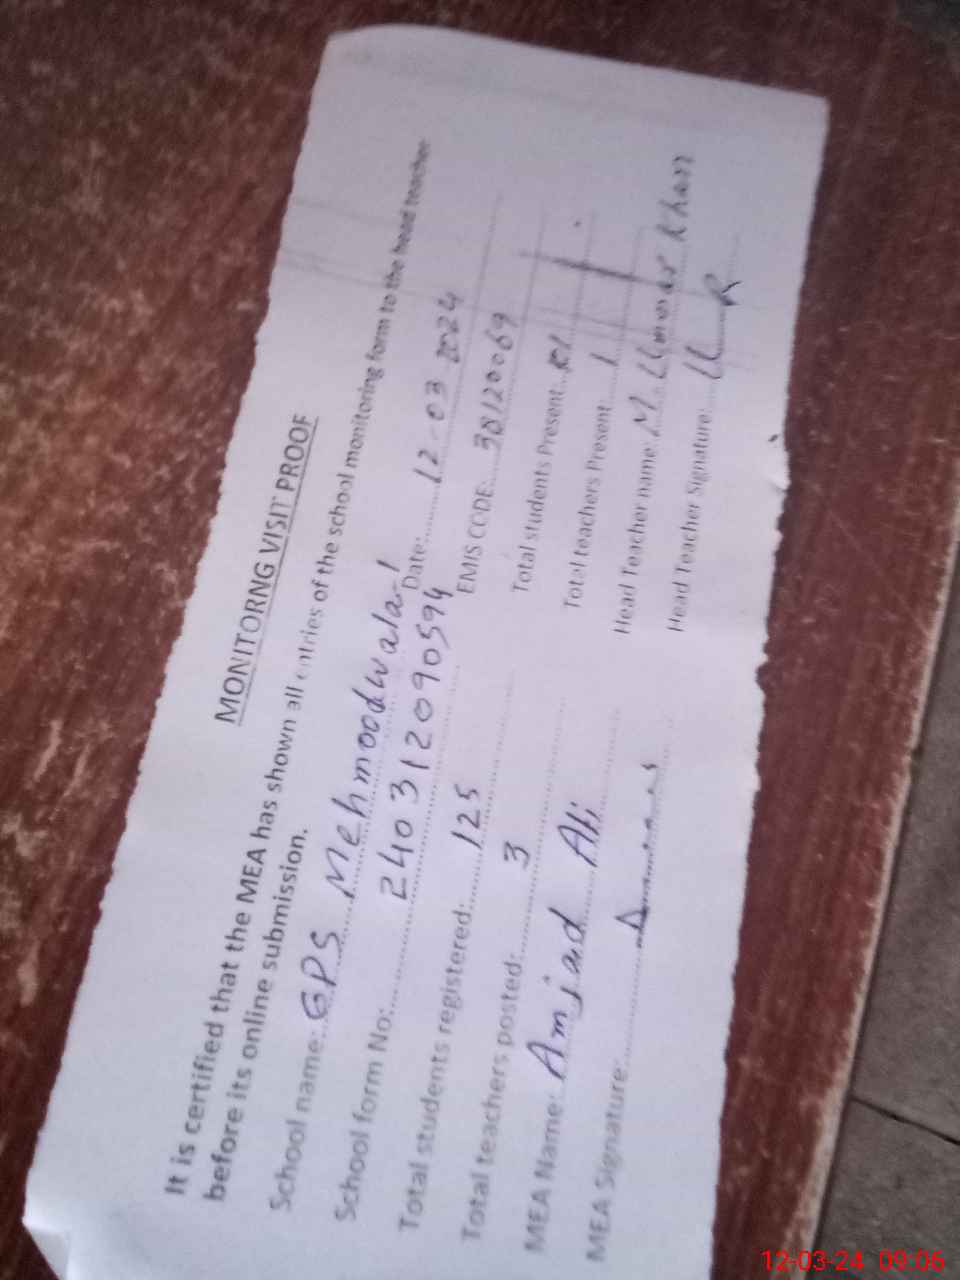 MONITORNG VISIT PROOF
It is certified that the MEA has shown all entries of the school monitoring form to the head teacher
before its online submission.
School name: GPS Mehmoodwala-1 Date: 12-03-2024
School form No: 240312090594 EMIS CODE: 38120069
Total students registered: 125 Total students Present
Total teachers posted: 3 Total teachers Present 1
MEA Name: Amjad Ali Head Teacher name: M. Umar Khan
MEA Signature: Head Teacher Signature:
12-03-24 09:06